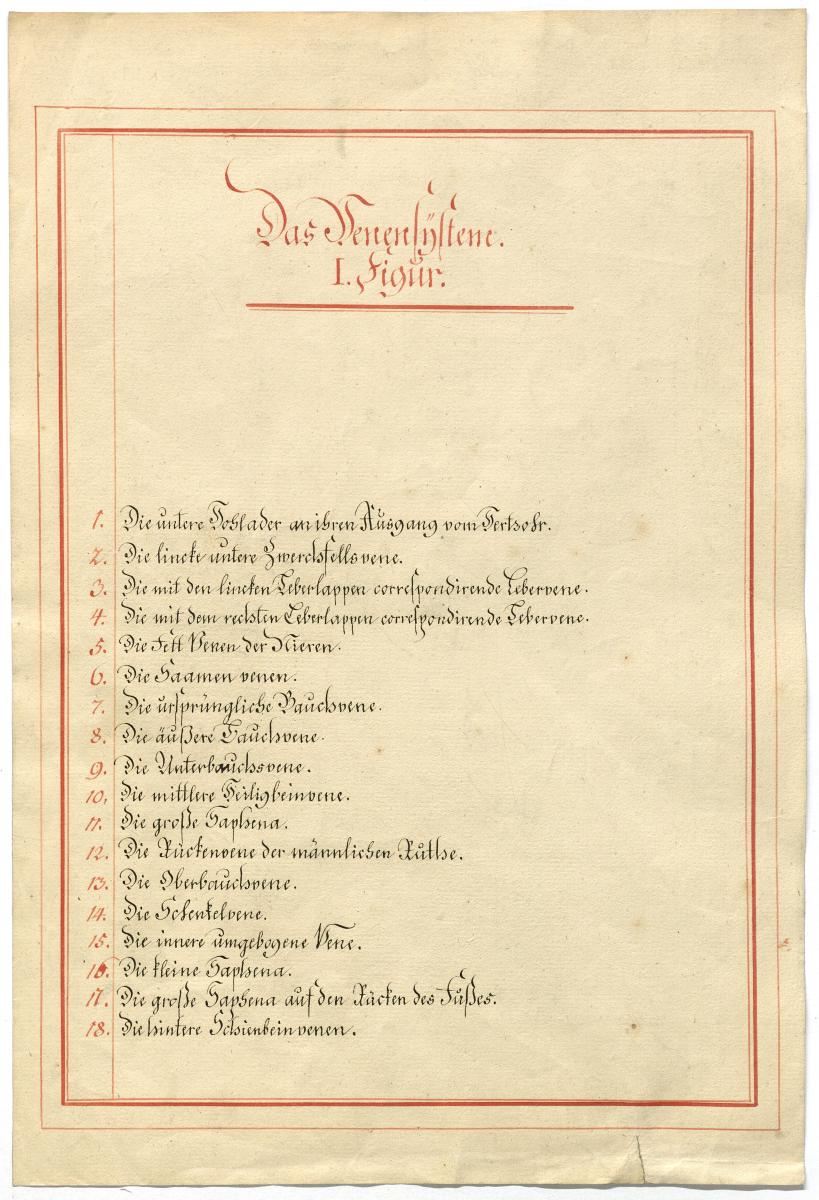 Das Venensÿstem.
I. Figur.
1. Die untere Hohlader an ihren Ausgang vom Hertzohr.
2. Die lincke untere Zwerchfellsvene.
3. Die mit den lincken Leberlappen correspondirende Lebervene.
4. Die mit dem rechten Leberlappen correspondirende Lebervene.
5. Die Fett Venen der Nieren.
6. Die Saamen venen.
7. Die ursprüngliche Bauchvene.
8. Die äußere Bauchvene.
9. Die Unterbauchsvene.
10. Die mittlere Heiligbeinvene.
11. Die große Saphena.
12. Die Rückenvene der männlichen Ruthe.
13. Die Oberbauchvene.
14. Die Schenkelvene.
15. Die innere umgebogene Vene.
16. Die kleine Saphena.
17. Die große Saphena auf den Rücken des Fußes.
18. Die hintere Schienbeinvenen.